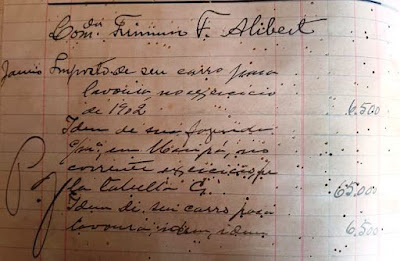 Com.dor Firmino F. Alibert
Imposto de seu carro para
lavoura no exercicio
de 1902 6.500
Idem de sua fazenda
em no
corrente exercicio pe
la tabella C. 65.000
Idem de seu carro para
lavoura idem, idem 6.500